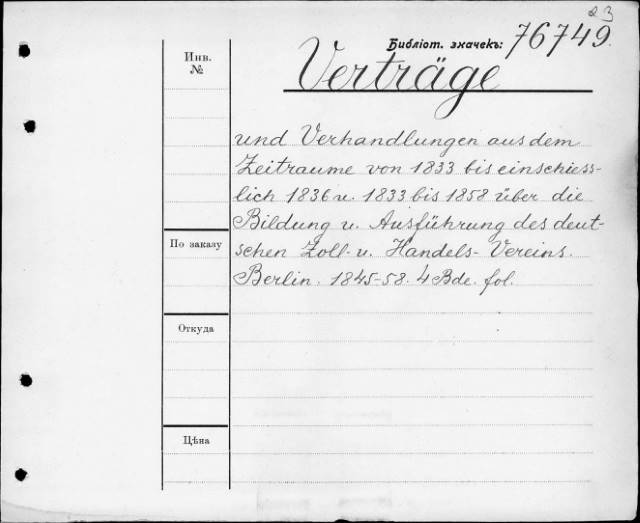 23
Библіот. значекъ: 76749.
Инв.
№
Verträge
und Verhandlungen aus dem
Zeitraume von 1833 bis einschiess-
lich 1836 u. 1833 bis 1858 über die
Bildung u. Ausführung des deut-
schen Zoll- u. Handels-Vereins.
Berlin. 1845-58. 4 Bde. fol.
По заказу
Откуда
Цѣна